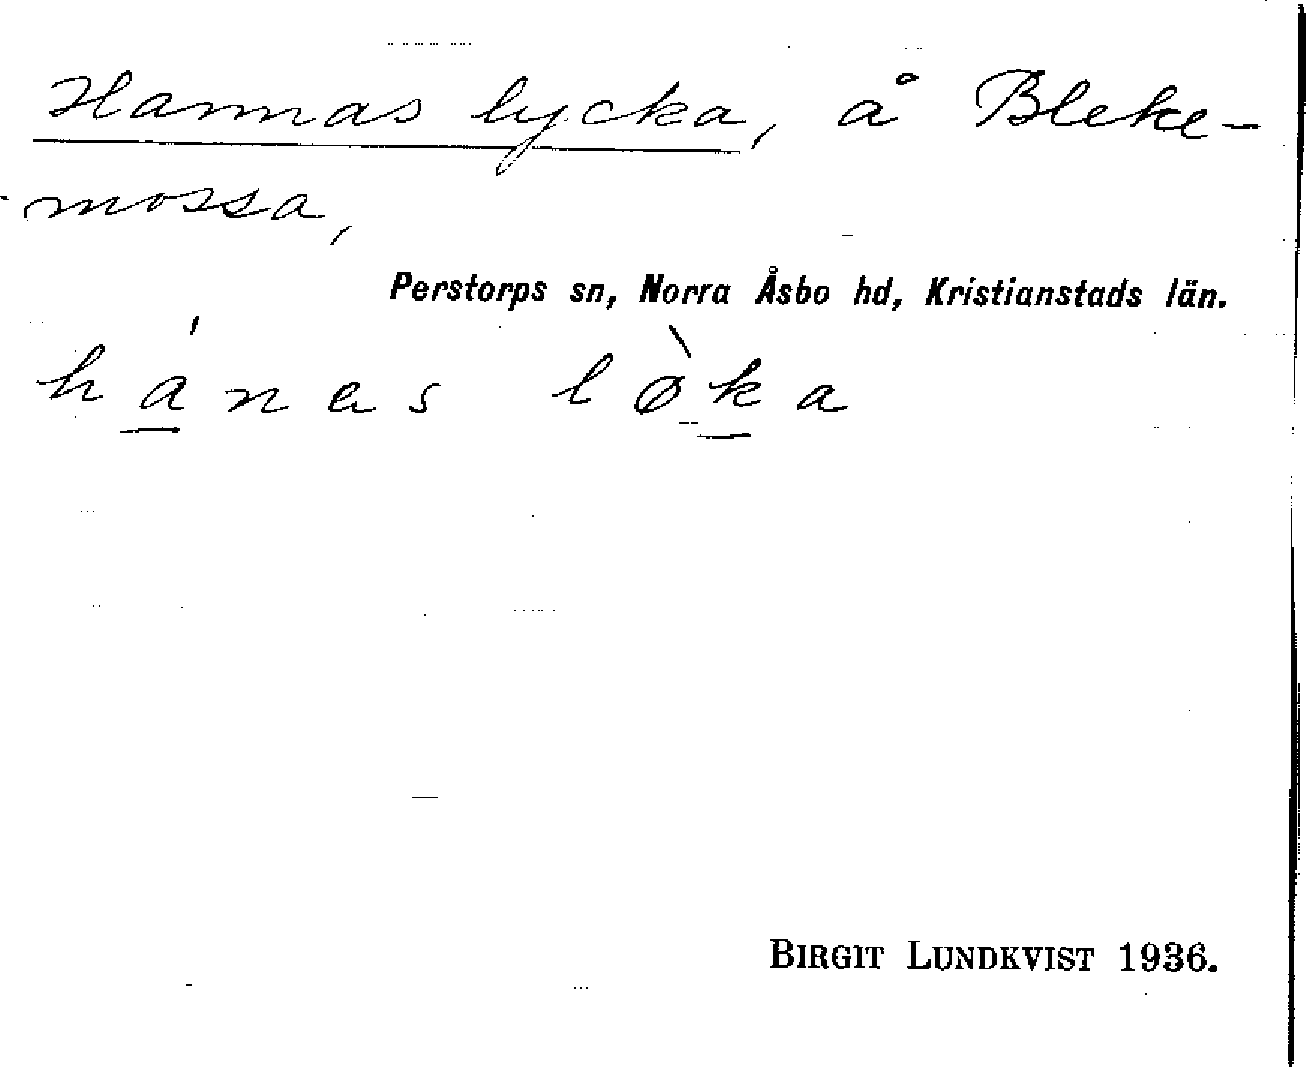 Hannas lycka, å Bleke-
mossa,
Perstorps sn, Norra Åsbo hd, Kristianstads län.
hánas lø̀ka
BIRGIT LUNDKVIST 1936.